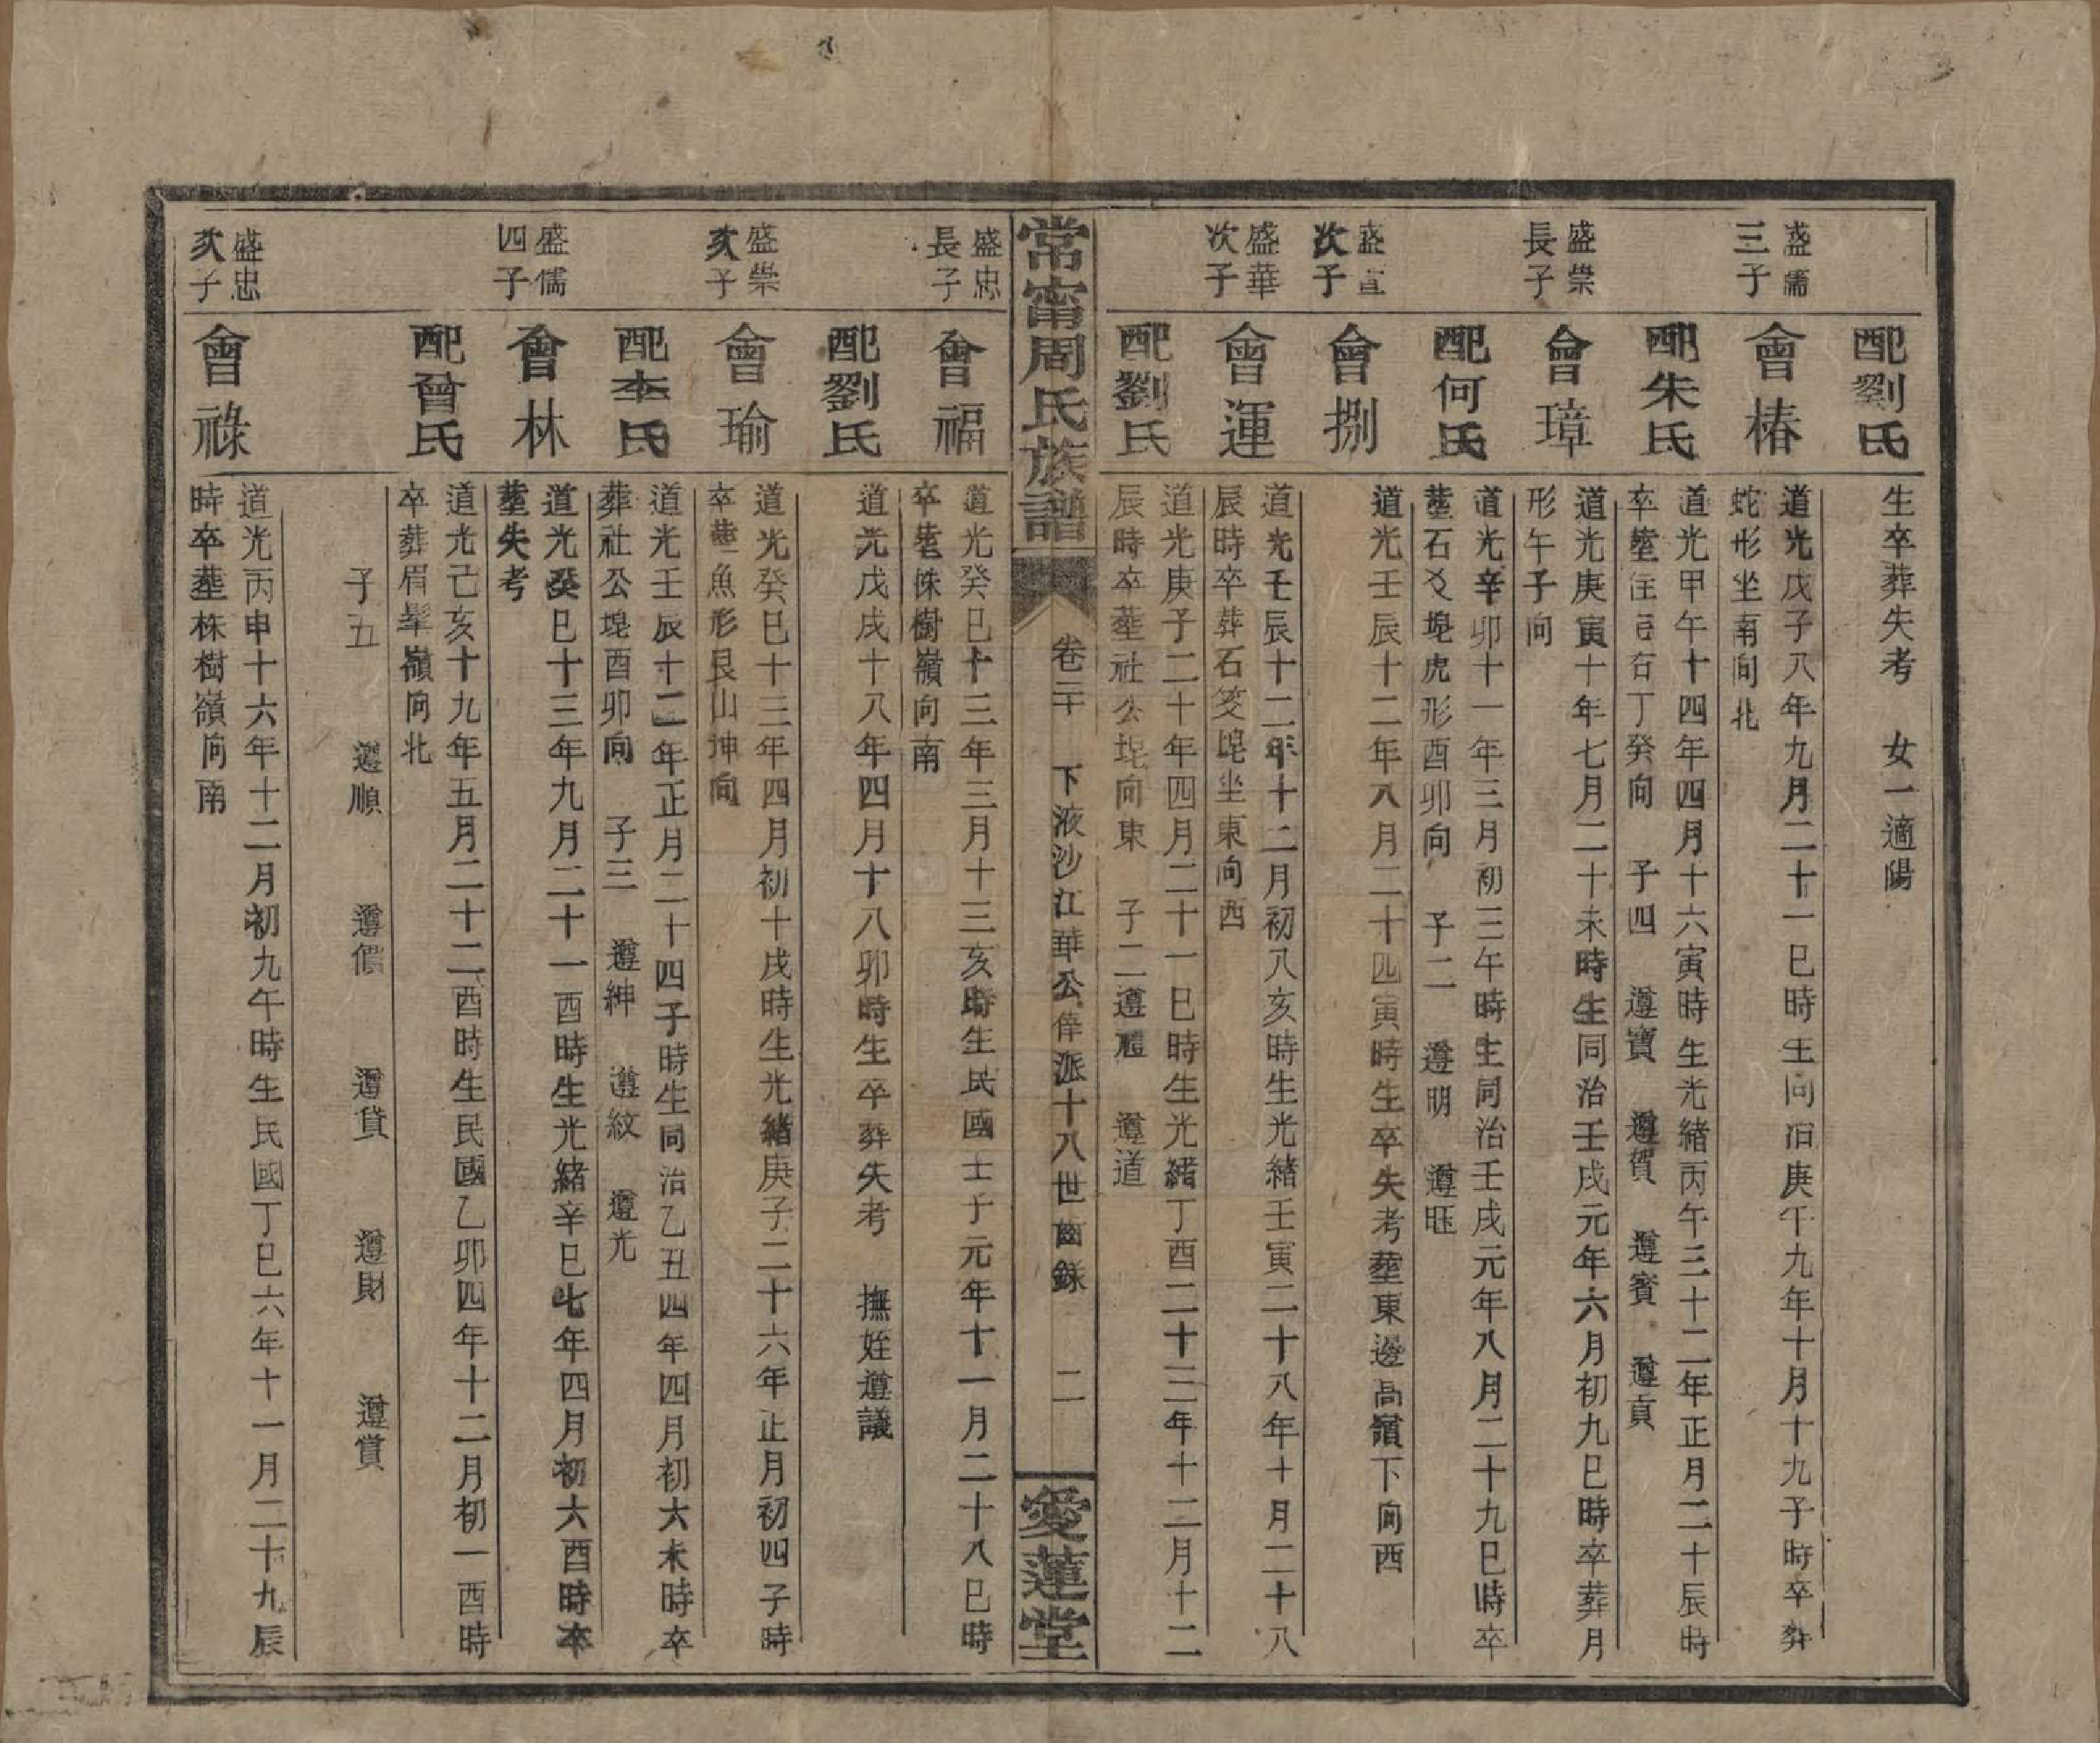 配劉氏
生卒葬失考　女一適陽
盛儒三子
會椿
道光戊子八年九月二十一巳時生同治庚午九年十月十九子時卒葬
蛇形坐南向北
配朱氏
道光甲午十四年四月十六寅時生光緒丙午三十二年正月二十辰時
卒塟右丁癸向　子四　遵寶　遵賀　遵賓　遵貢
盛崇長子
會璋
道光庚寅十年七月二十未時生同治壬戌元年六月初九巳時卒葬月
形午子向
配何氏
道光辛卯十一年三月初三午時生同治壬戌元年八月二十九巳時卒
塟石爻塊虎形酉卯向　子二　遵明　遵旺
盛宣次子
會捌
道光壬辰十二年八月二十四寅時生卒失考塟東邊高嶺下向西
盛華次子
會運
道光壬辰十二年十二月初八亥時生光緒壬寅二十八年十月二十八
辰時卒葬石筊塊坐東向西
配劉氏
道光庚子二十年四月二十一巳時生光緒丁酉二十三年十二月十二
辰時卒塟社公塊向東　子二遵禮　遵道
常甯周氏族譜
卷二十　下液沙江華公偉派十八世齒錄　二
愛蓮堂
盛忠長子
會福
道光癸巳十三年三月十三亥時生民國壬子元年十一月二十八巳時
卒塟株樹嶺向南
配劉氏
道光戊戌十八年四月十八卯時生卒葬失考　撫姪遵議
盛崇次子
會瑜
道光癸巳十三年四月初十戌時生光緒庚子二十六年正月初四子時
卒塟魚形艮山坤向
配李氏
道光壬辰十二年正月二十四子時生同治乙丑四年四月初六未時卒
葬社公塊酉卯向　子三　遵紳　遵紋　遵光
盛儒四子
會林
道光癸巳十三年九月二十一酉時生光緒辛巳七年四月初六酉時卒
塟失考
配曾氏
道光己亥十九年五月二十二酉時生民國乙卯四年十二月初一酉時
卒葬眉髼嶺向北
子五　遵順　遵償　遵貸　遵財　遵賞
盛忠次子
會祿
道光丙申十六年十二月初九午時生民國丁巳六年十一月二十九辰
時卒塟株樹嶺向南